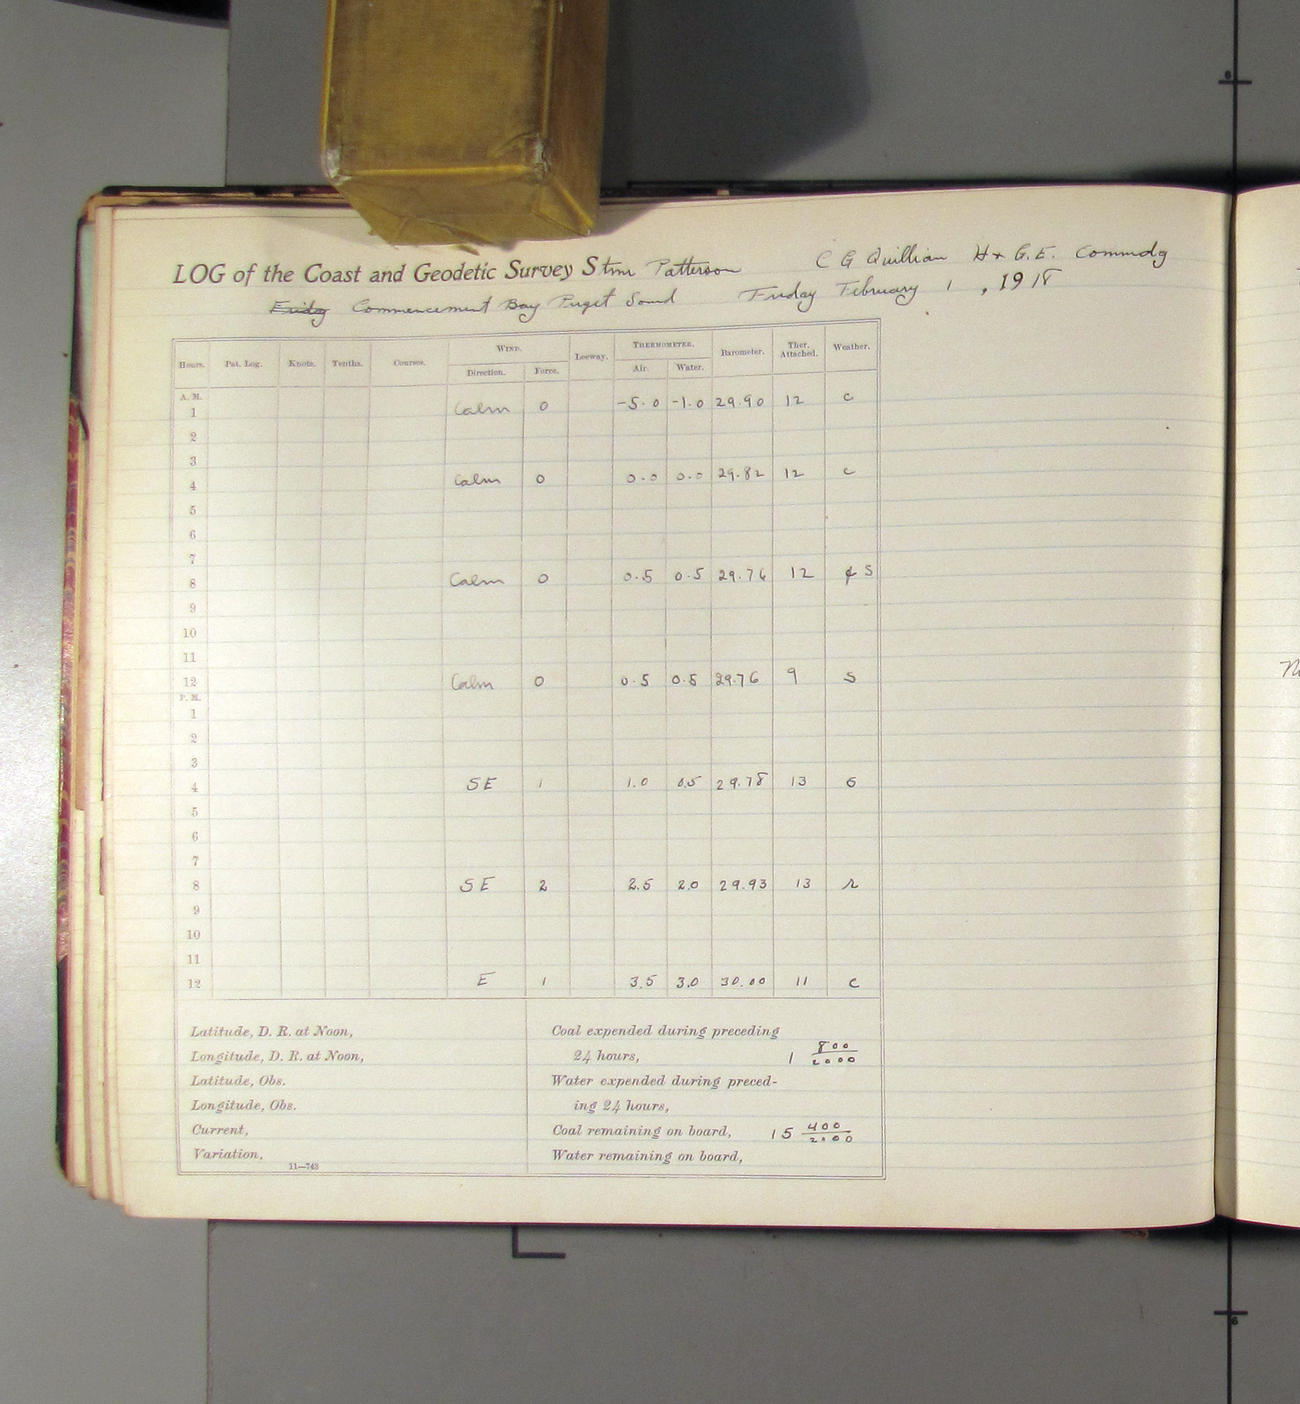 LOG of the Coast and Geodetic Survey Stmr Patterson C G Quillian H & G.E. Commdg
Friday Commencement Bay Puget Sound Friday February 1, 1918
Hours. Pat. Log. Knots. Tenths. Courses. WIND. Leeway. THERMOMETER. Barometer. Ther. Attached. Weather.
Direction. Force. Air. Water.
A. M.
1 Calm 0 -5.0 -1.0 29.90 12 c
2
3
4 Calm 0 0.0 0.0 29.82 12 c
5
6
7
8 Calm 0 0.5 0.5 29.76 12 s
9
10
11
12 Calm 0 0.5 0.5 29.76 9 s
P. M.
1
2
3
4 SE 1 1.0 0.5 29.78 13
5
6
7
8 SE 2 2.5 2.0 29.93 13 r
9
10
11
12 E 1 3.5 3.0 30.00 11 c
Latitude, D. R. at Noon,
Longitude, D. R. at Noon,
Latitude, Obs.
Longitude, Obs.
Current,
Variation,
11—743
Coal expended during preceding
24 hours, 1 800/2000
Water expended during preced-
ing 24 hours,
Coal remaining on board, 15 400/2000
Water remaining on board,
6
6